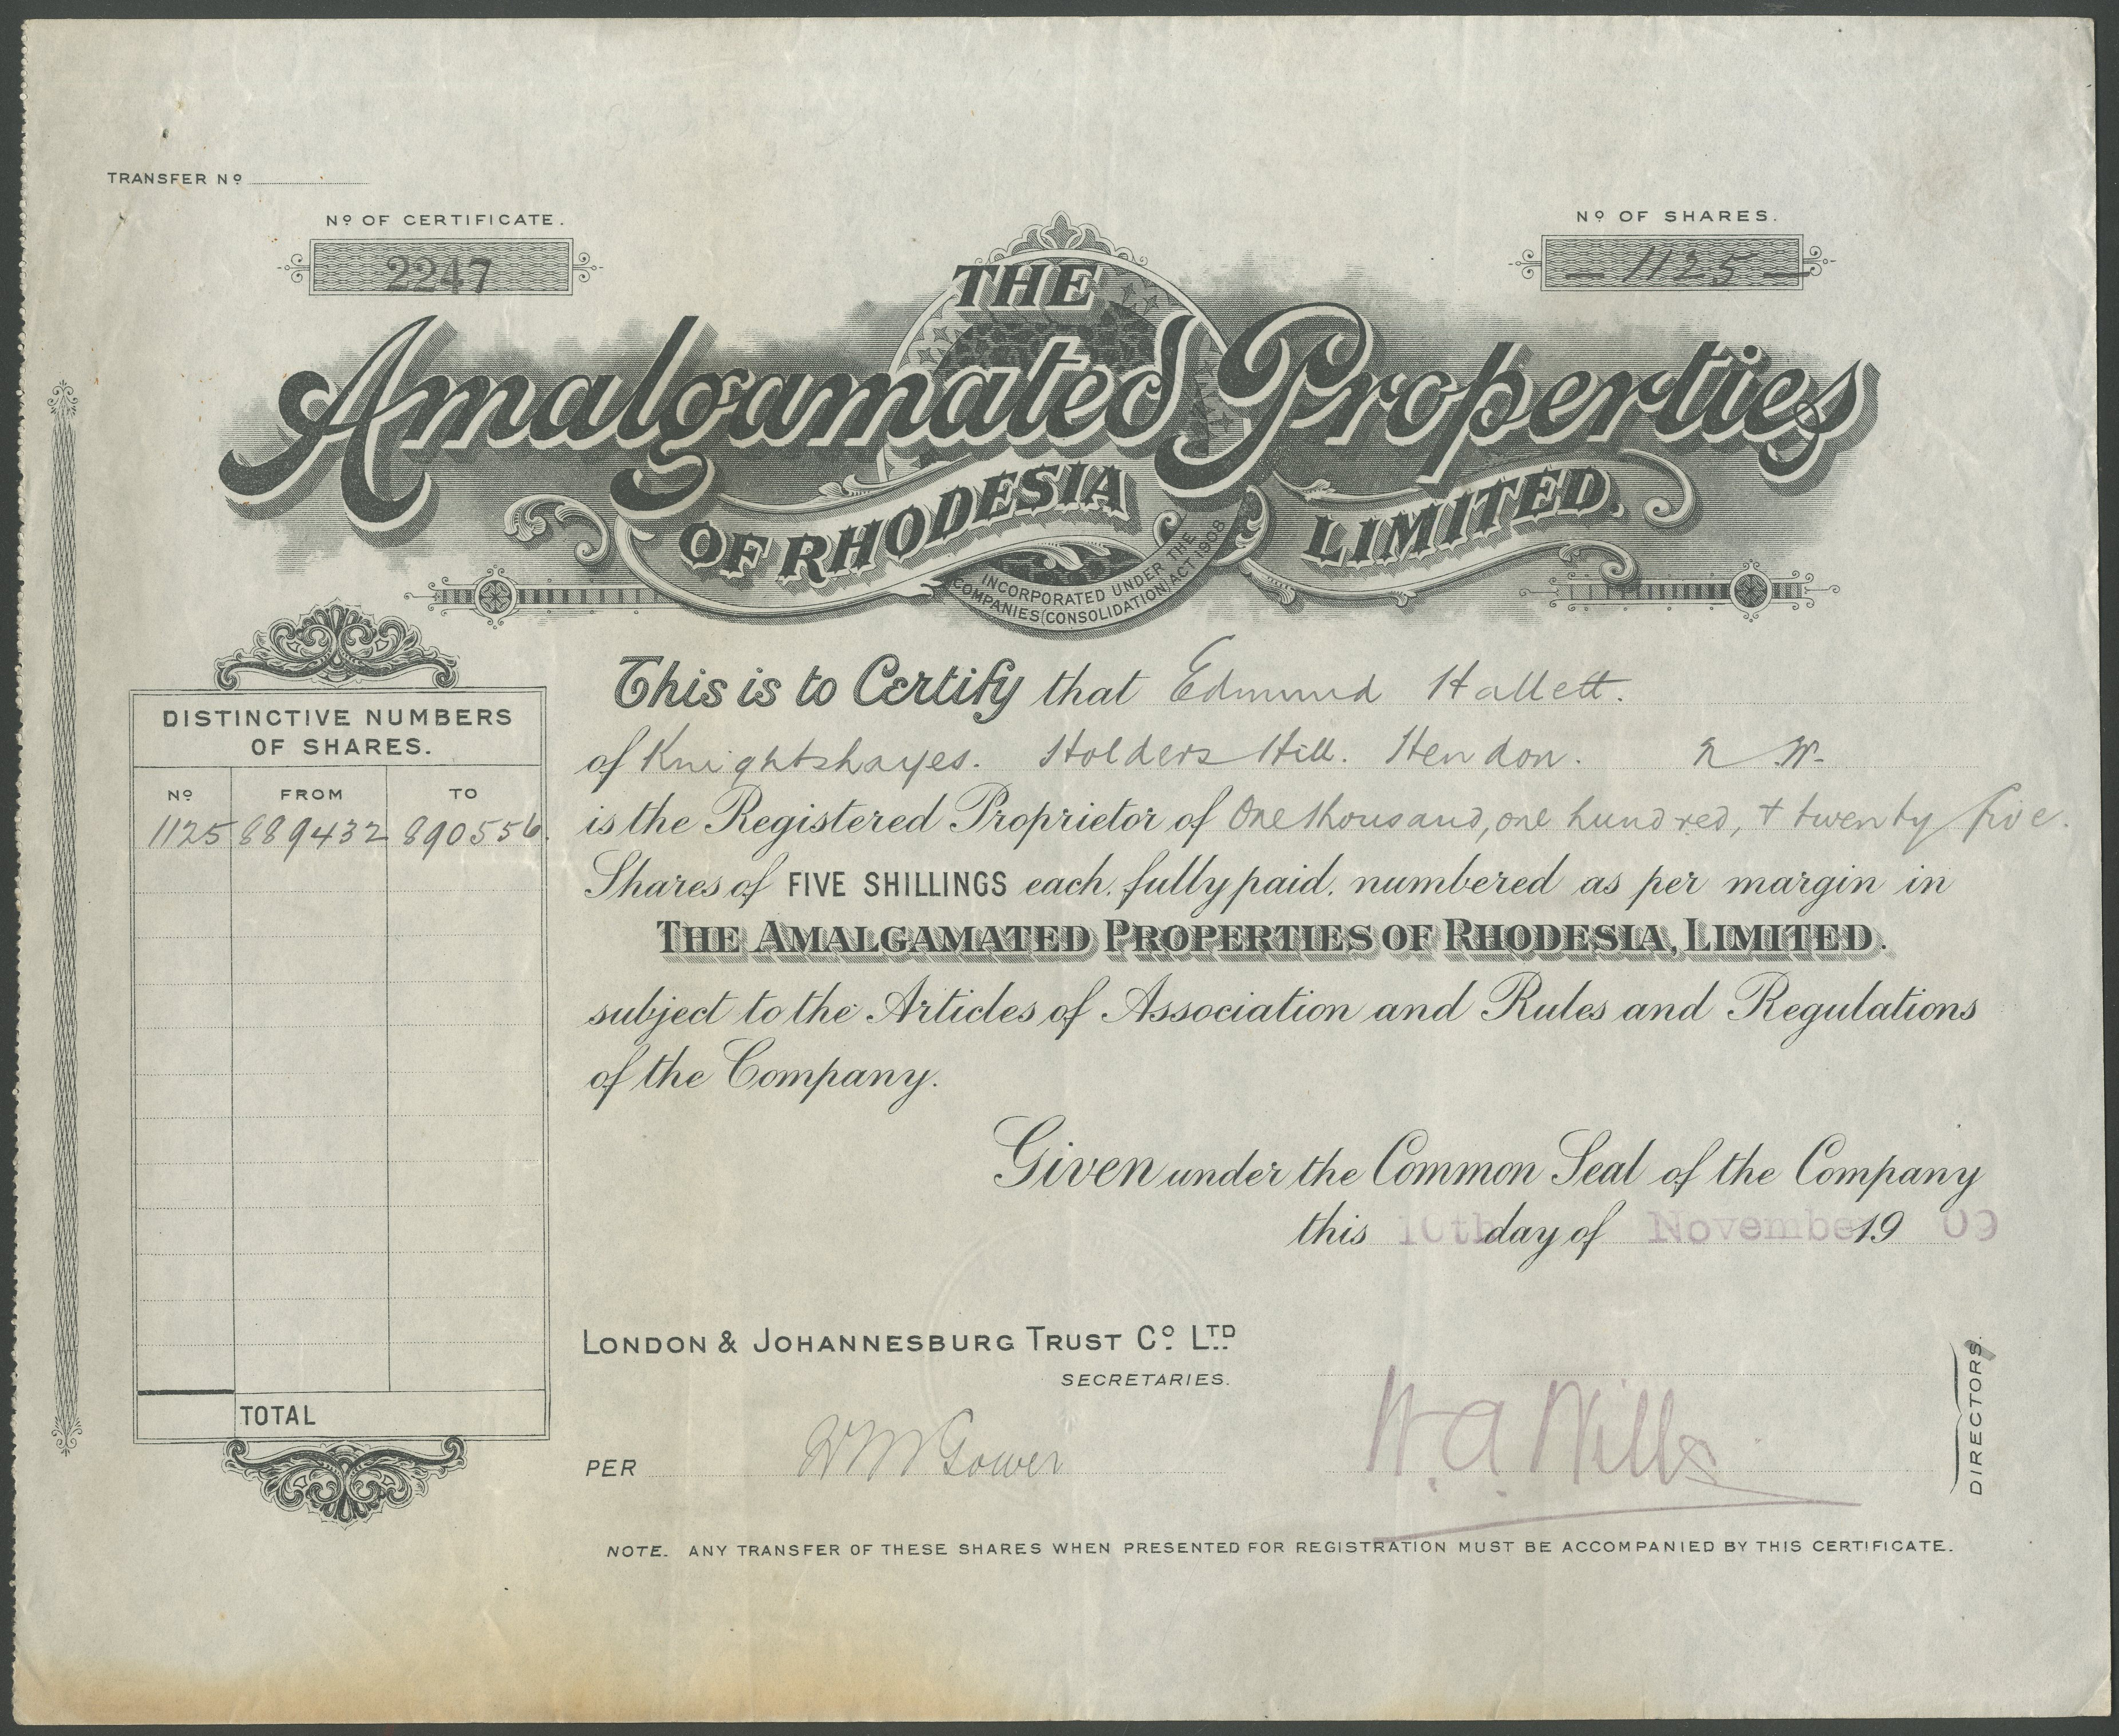 TRANSFER Nº
Nº OF CERTIFICATE.
2247
Nº OF SHARES.
— 1125 —
THE
Amalgamated Properties
OF RHODESIA LIMITED.
INCORPORATED UNDER THE
COMPANIES (CONSOLIDATION) ACT 1908
DISTINCTIVE NUMBERS
OF SHARES.
Nº FROM TO
1125 889432 890556.
TOTAL
This is to Certify that Edmund Hallett.
of Knightshayes. Holders Hill. Hendon. N W.
is the Registered Proprietor of One thousand, one hundred, + twenty five.
Shares of FIVE SHILLINGS each, fully paid, numbered as per margin in
THE AMALGAMATED PROPERTIES OF RHODESIA, LIMITED.
subject to the Articles of Association and Rules and Regulations
of the Company.
Given under the Common Seal of the Company
this 10th day of November 19 09
LONDON & JOHANNESBURG TRUST Cº LTD
SECRETARIES.
PER Gower
W. A. Wills
DIRECTORS.
NOTE. ANY TRANSFER OF THESE SHARES WHEN PRESENTED FOR REGISTRATION MUST BE ACCOMPANIED BY THIS CERTIFICATE.